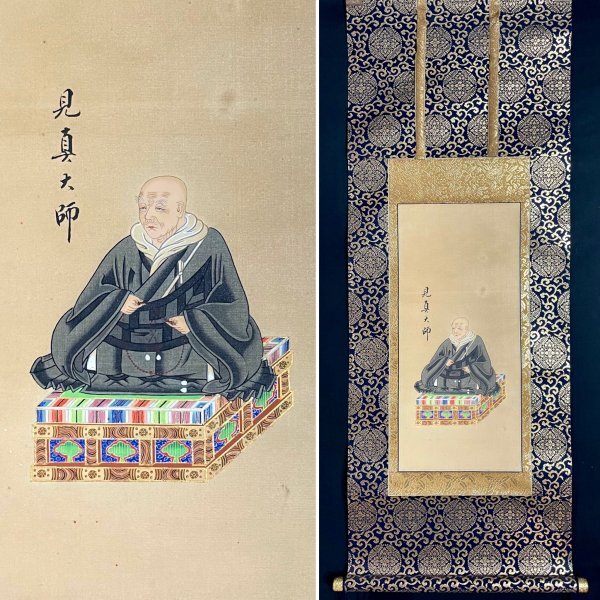 見真大師
見真大師